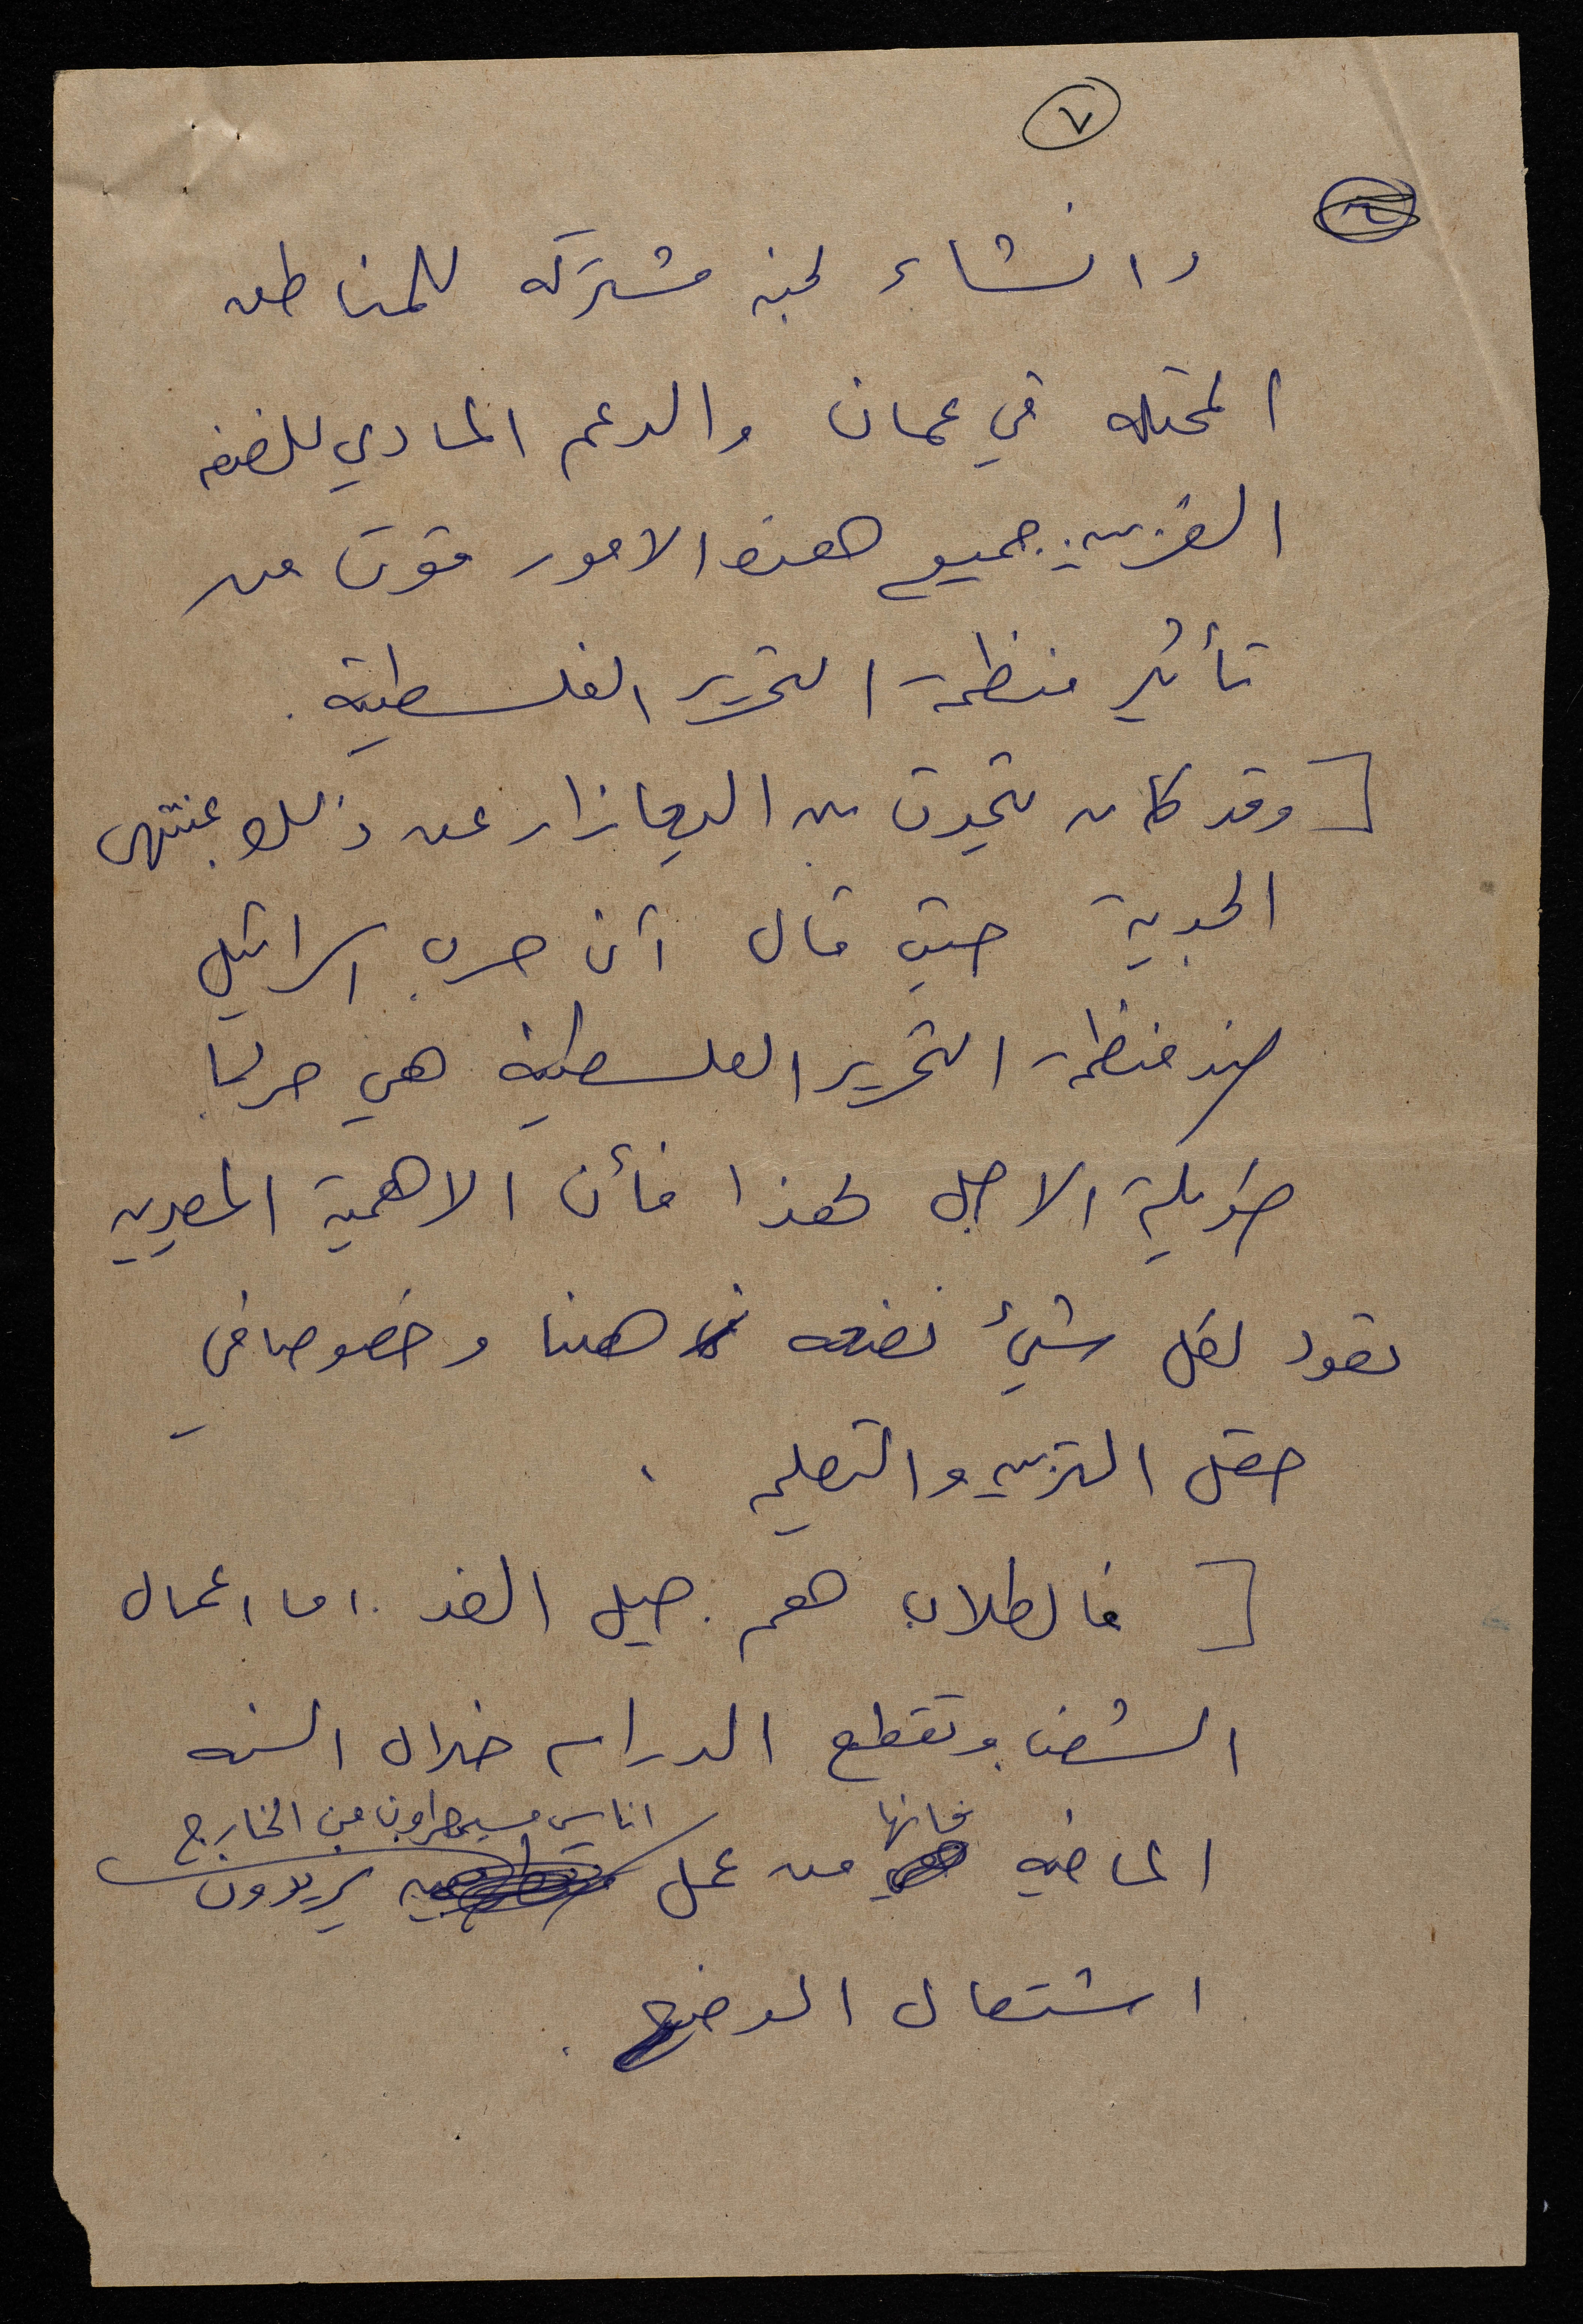 ٧
وانشاء لجنه مشتركه للمناطق
المحتله في عمان والدعم المادي للضفه
الغربيه. جميع هذه الامور قوت من
تأثير منظمة التحرير الفلسطينية.
[ وقد كان يتحدث بن اليعازار عن ذلك بمنتهى
الجدية حتى قال أن حرب اسرائيل
ضد منظمة التحرير الفلسطينية هي حربا
طويلة الاجل لهذا فأن الاهمية المصيريه
تعود لكل شيئ نضعه هنا وخصوصا في
حقل التربيه والتعليم .
[ فالطلاب هم جيل الغد. اما اعمال
الشغب وتقطع الدراسه خلال السنه
الماضيه فانها من عمل اناس مسيطرون من الخارج يريدون
اشتعال الوضع.